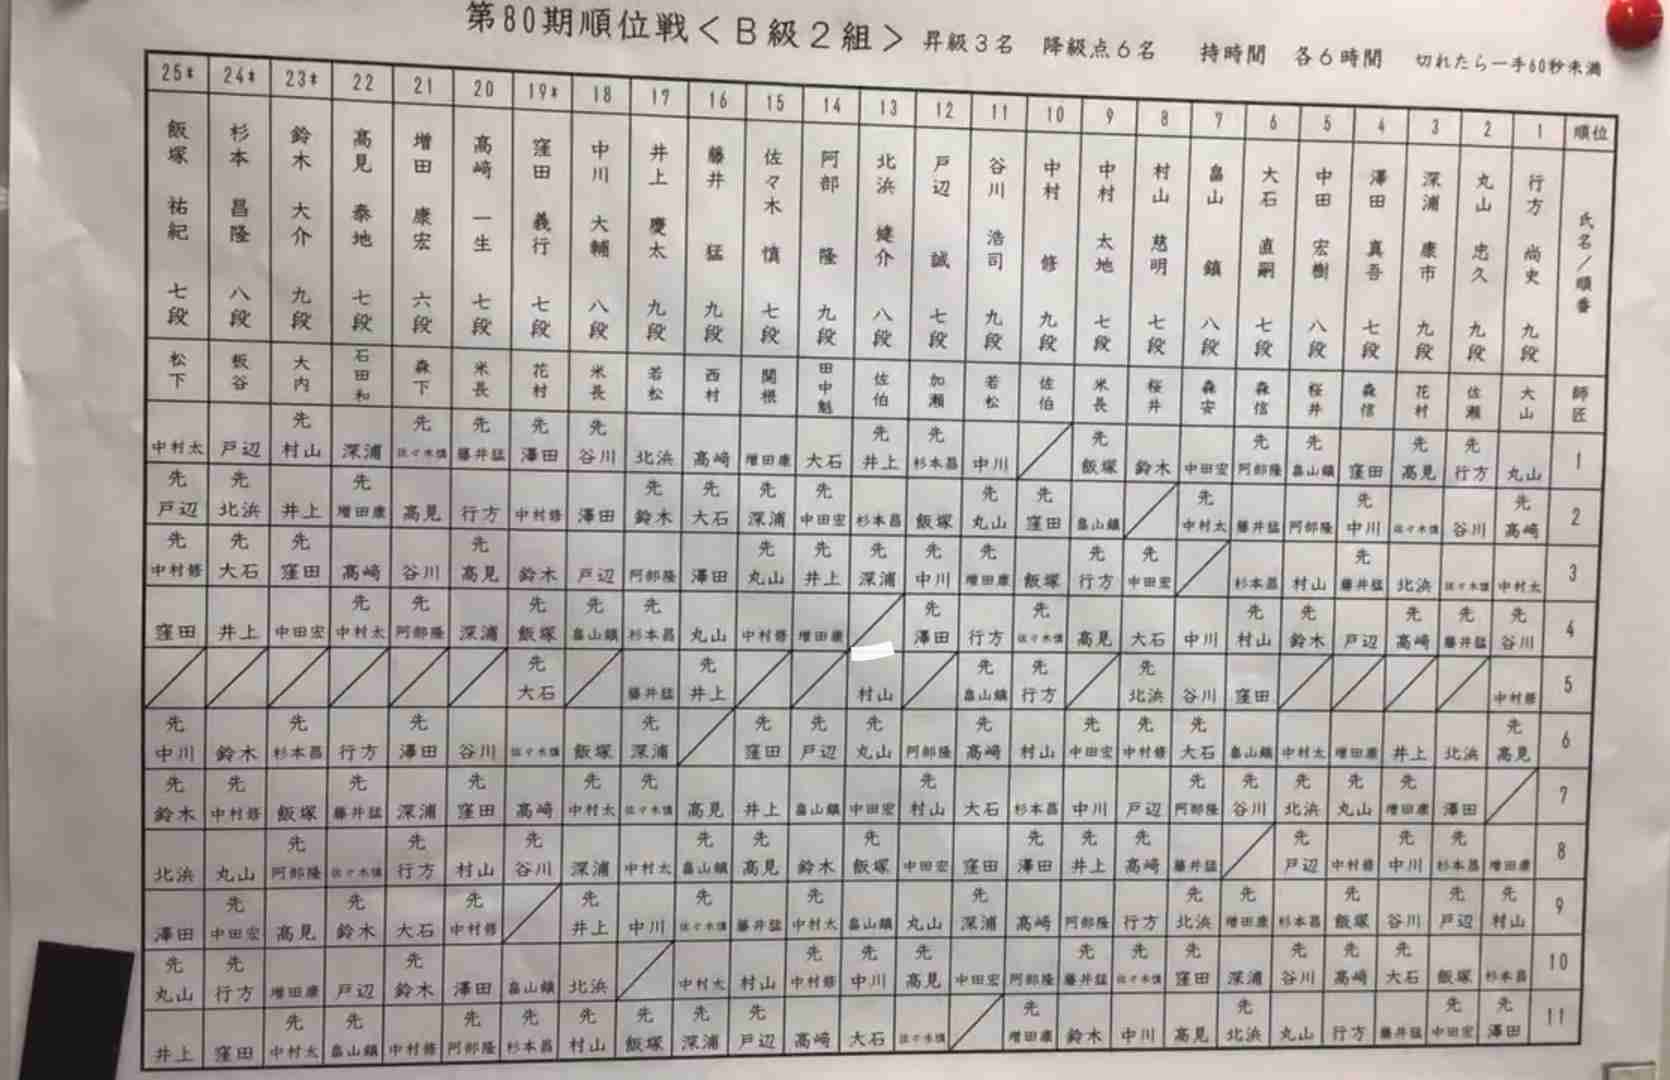 第80期順位戦＜B級2組＞ 昇級3名 降級点6名 持時間 各6時間 切れたら一手60秒未満
25* 24* 23* 22 21 20 19* 18 17 16 15 14 13 12 11 10 9 8 7 6 5 4 3 2 1 順位
飯塚祐紀七段 杉本昌隆八段 鈴木大介九段 髙見泰地七段 増田康宏六段 髙﨑一生七段 窪田義行七段 中川大輔八段 井上慶太九段 藤井猛九段 佐々木慎七段 阿部隆九段 北浜健介八段 戸辺誠七段 谷川浩司九段 中村修九段 中村太地七段 村山慈明七段 畠山鎮八段 大石直嗣七段 中田宏樹八段 澤田真吾七段 深浦康市九段 丸山忠久九段 行方尚史九段 氏名／順番
松下 板谷 大内 石田和 森下 米長 花村 米長 若松 西村 関根 田中魁 佐伯 加瀬 若松 佐伯 米長 桜井 森安 森信 桜井 森信 花村 佐瀬 大山 師匠
先 先 先 先 先 先 先 先 先 先 先 先
中村太 戸辺 村山 深浦 佐々木慎 藤井猛 澤田 谷川 北浜 髙﨑 増田康 大石 井上 杉本昌 中川 飯塚 鈴木 中田宏 阿部隆 畠山鎮 窪田 髙見 行方 丸山 1
先 先 先 先 先 先 先 先 先 先 先 先
戸辺 北浜 井上 増田康 髙見 行方 中村修 澤田 鈴木 大石 深浦 中田宏 杉本昌 飯塚 丸山 窪田 畠山鎮 中村太 藤井猛 阿部隆 中川 佐々木慎 谷川 髙﨑 2
先 先 先 先 先 先 先 先 先 先 先 先
中村修 大石 窪田 髙﨑 谷川 髙見 鈴木 戸辺 阿部隆 澤田 丸山 井上 深浦 中川 増田康 飯塚 行方 中田宏 杉本昌 村山 藤井猛 北浜 佐々木慎 中村太 3
先 先 先 先 先 先 先 先 先 先 先 先
窪田 井上 中田宏 中村太 阿部隆 深浦 飯塚 畠山鎮 杉本昌 丸山 中村修 増田康 澤田 行方 佐々木慎 髙見 大石 中川 村山 鈴木 戸辺 髙﨑 藤井猛 谷川 4
先 先 先 先 先
大石 藤井猛 井上 村山 畠山鎮 行方 北浜 谷川 窪田 中村修 5
先 先 先 先 先 先 先 先 先 先 先 先
中川 鈴木 杉本昌 行方 澤田 谷川 佐々木慎 飯塚 深浦 窪田 戸辺 丸山 阿部隆 髙﨑 村山 中田宏 中村修 大石 畠山鎮 中村太 増田康 井上 北浜 髙見 6
先 先 先 先 先 先 先 先 先 先 先 先
鈴木 中村修 飯塚 藤井猛 深浦 窪田 髙﨑 中村太 佐々木慎 髙見 井上 畠山鎮 中田宏 村山 大石 杉本昌 中川 戸辺 阿部隆 谷川 北浜 丸山 増田康 澤田 7
先 先 先 先 先 先 先 先 先 先 先 先
北浜 丸山 阿部隆 佐々木慎 行方 村山 谷川 深浦 中村太 畠山鎮 髙見 鈴木 飯塚 中田宏 窪田 澤田 井上 髙﨑 藤井猛 戸辺 中村修 中川 杉本昌 増田康 8
先 先 先 先 先 先 先 先 先 先 先 先
澤田 中田宏 髙見 鈴木 大石 中村修 井上 中川 佐々木慎 藤井猛 中村太 畠山鎮 丸山 深浦 髙﨑 阿部隆 行方 北浜 増田康 杉本昌 飯塚 谷川 戸辺 村山 9
先 先 先 先 先 先 先 先 先 先 先 先
丸山 行方 増田康 戸辺 鈴木 澤田 畠山鎮 北浜 中村太 村山 中村修 中川 髙見 中田宏 阿部隆 藤井猛 佐々木慎 窪田 深浦 谷川 髙﨑 大石 飯塚 杉本昌 10
先 先 先 先 先 先 先 先 先 先 先 先
井上 窪田 中村太 畠山鎮 中村修 阿部隆 杉本昌 村山 飯塚 深浦 戸辺 髙﨑 大石 佐々木慎 増田康 鈴木 中川 髙見 北浜 丸山 行方 藤井猛 中田宏 澤田 11